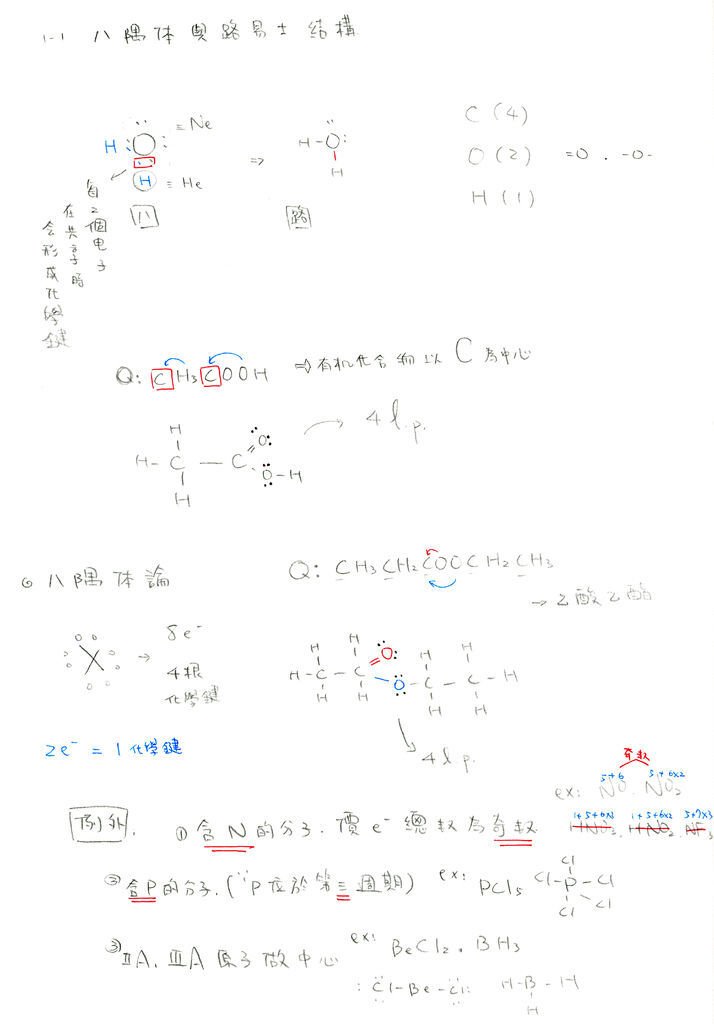 1-1 八隅体與路易士結構
H :O: ≡ Ne
H ≡ He
八
每2個电子
在共享時
会形成化學鍵
⇒ H-O:
H
路
C (4)
O (2) =O . -O-
H (1)
Q: CH3COOH ⇒ 有机化合物以 C 為中心
H
H-C-C O
O-H
H
4 l.p.
八隅体論
X → 8e-
4根
化學鍵
2e- = 1 化學鍵
Q: CH3CH2COOCH2CH3
→ 乙酸乙酯
H H O H H
H-C-C O-C-C-H
H H H H
4 l.p.
例外. ①含N的分子.價e-總数為奇数
奇数
5+6 5+6x2
ex: NO. NO2
1+5+6x3 1+5+6x2 5+7x3
HNO3. HNO2. NF3
②含P的分子.(∵P位於第三週期) ex: PCl5
Cl
Cl-P-Cl
Cl Cl
③ⅡA.ⅢA原子做中心 ex: BeCl2. BH3
:Cl-Be-Cl: H-B-H
H